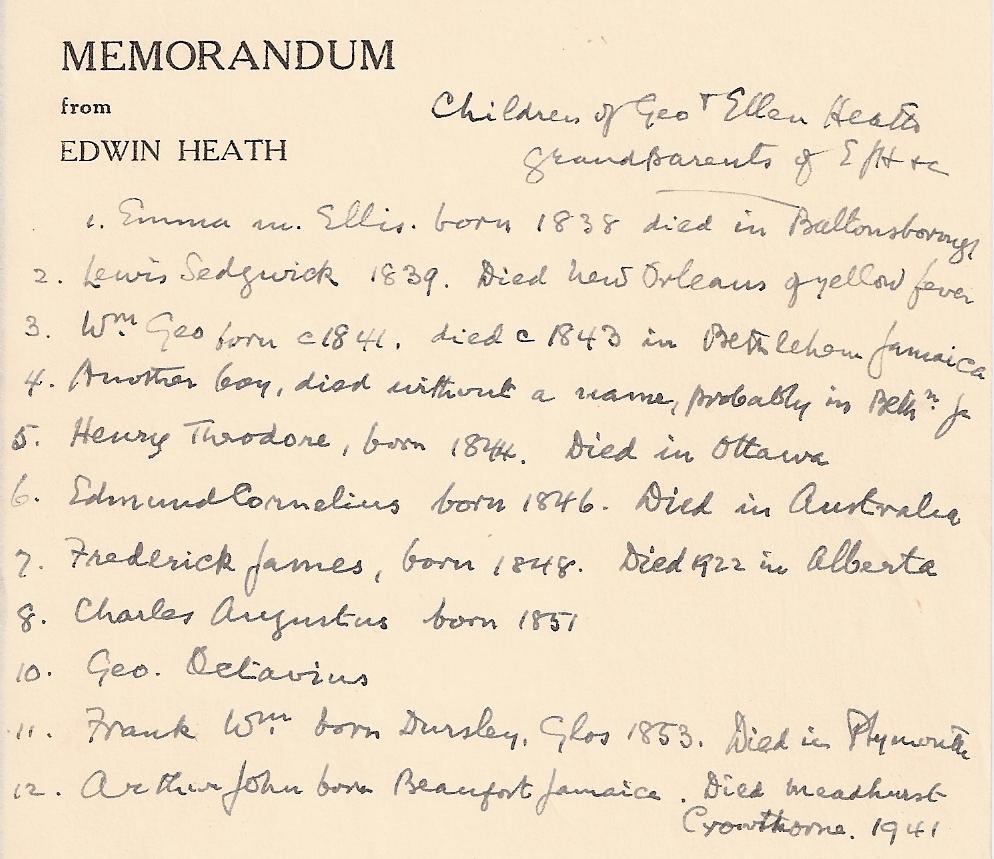 MEMORANDUM
from
EDWIN HEATH
Children of Geo + Ellen Heath
grandparents of EJH &c
1. Emma m. Ellis. born 1838 died in Baltonsborough
2. Lewis Sedgwick 1839. Died New Orleans of yellow fever
3. Wm Geo born c 1841. died c 1843 in Bethlehem Jamaica
4. Another boy, died without a name, probably in Bethn Ja
5. Henry Theodore, born 1844. Died in Ottawa
6. Edmund Cornelius born 1846. Died in Australia
7. Frederick James, born 1848. Died 1922 in Alberta
8. Charles Augustus born 1851
10. Geo. Octavius
11. Frank Wm. born Dursley, Glos 1853. Died in Plymouth
12. Arthur John born Beaufort Jamaica. Died Meadhurst
Crowthorne. 1941